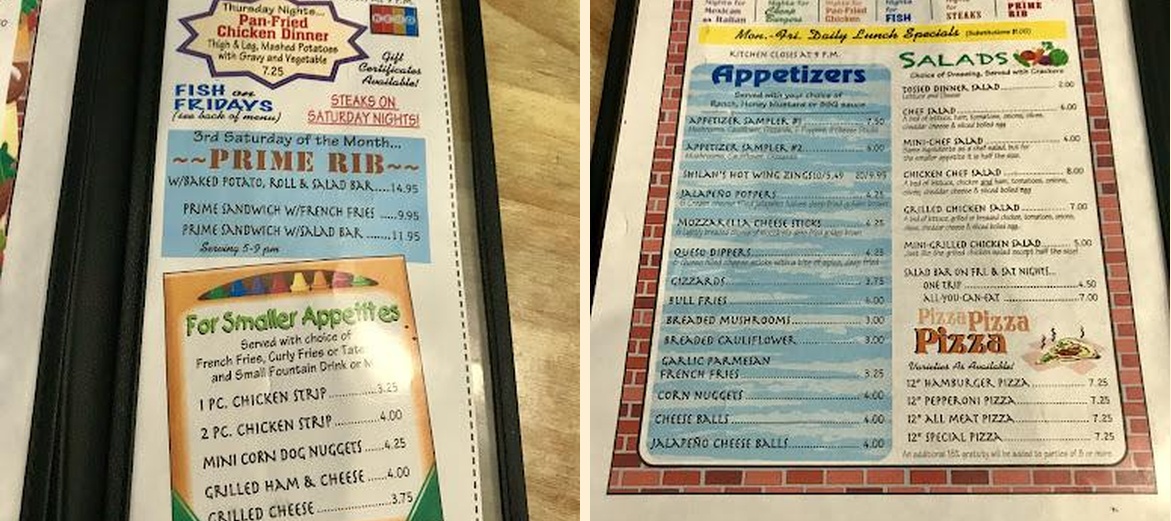 Thursday Nights...
Pan-Fried
Chicken Dinner
Thigh & Leg, Mashed Potatoes
with Gravy and Vegetable
7.25
Gift
Certificates
Available!
FISH on
FRIDAYS
(see back of menu)
STEAKS ON
SATURDAY NIGHTS!
3rd Saturday of the Month...
~~PRIME RIB~~
W/BAKED POTATO, ROLL & SALAD BAR....14.95
PRIME SANDWICH W/FRENCH FRIES ......9.95
PRIME SANDWICH W/SALAD BAR .........11.95
Serving 5-9 pm
For Smaller Appetites
Served with choice of
French Fries, Curly Fries or Tate
and Small Fountain Drink or M
1 PC. CHICKEN STRIP ............3.25
2 PC. CHICKEN STRIP ...........4.00
MINI CORN DOG NUGGETS.....4.25
GRILLED HAM & CHEESE ......4.00
GRILLED CHEESE ................3.75
Mexican
or Italian
Burgers
Pan-Fried
Chicken
for
FISH
for
STEAKS
PRIME
RIB
Mon.-Fri. Daily Lunch Specials (Substitutions $1.00)
KITCHEN CLOSES AT 9 P.M.
Appetizers
Served with your choice of
Ranch, Honey Mustard or BBQ sauce
APPETIZER SAMPLER #1 7.50
APPETIZER SAMPLER #2 6.00
SHILAN'S HOT WING ZINGS 10/5.49 20/9.95
JALAPEÑO POPPERS 4.25
MOZZARELLA CHEESE STICKS 4.25
QUESO DIPPERS 4.25
GIZZARDS 3.75
BULL FRIES 4.00
BREADED MUSHROOMS 3.00
BREADED CAULIFLOWER 3.00
GARLIC PARMESAN
FRENCH FRIES 3.25
CORN NUGGETS 4.00
CHEESE BALLS 4.00
JALAPEÑO CHEESE BALLS 4.00
SALADS
Choice of Dressing, Served with Crackers
TOSSED DINNER SALAD 2.00
Lettuce and Cheese
CHEF SALAD 6.00
A bed of lettuce, ham, tomatoes, onions, olives,
cheddar cheese & sliced boiled egg
MINI-CHEF SALAD 4.00
Same ingredients as a chef salad, but for
the smaller appetite it is half the size.
CHICKEN CHEF SALAD 8.00
A bed of lettuce, chicken and ham, tomatoes, onions,
olives, cheddar cheese & sliced boiled egg
GRILLED CHICKEN SALAD 7.00
A bed of lettuce, grilled or breaded chicken, tomatoes, onions,
olives, cheddar cheese & sliced boiled egg.
MINI-GRILLED CHICKEN SALAD 5.00
Just like the grilled chicken salad except half the size!
SALAD BAR ON FRI. & SAT NIGHTS...
ONE TRIP 4.50
ALL-YOU-CAN-EAT 7.00
Pizza Pizza
Pizza
Varieties As Available!
12" HAMBURGER PIZZA 7.25
12" PEPPERONI PIZZA 7.25
12" ALL MEAT PIZZA 7.25
12" SPECIAL PIZZA 7.25
An additional 15% gratuity will be added to parties of 8 or more.